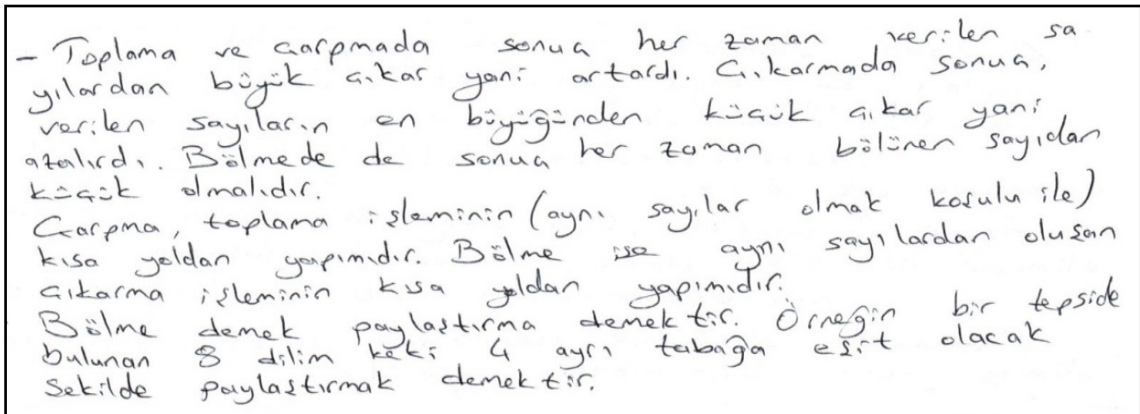 - Toplama ve çarpmada sonuç her zaman verilen sa
yılardan büyük çıkar yani artardı. Çıkarmada sonuç,
verilen sayıların en büyüğünden küçük çıkar yani
azalırdı. Bölmede de sonuç her zaman bölünen sayıdan
küçük olmalıdır.
Çarpma, toplama işleminin (aynı sayılar olmak koşulu ile)
kısa yoldan yapımıdır. Bölme ise aynı sayılardan oluşan
çıkarma işleminin kısa yoldan yapımıdır.
Bölme demek paylaştırma demektir. Örneğin bir tepside
bulunan 8 dilim keki 4 ayrı tabağa eşit olacak
şekilde paylaştırmak demektir.